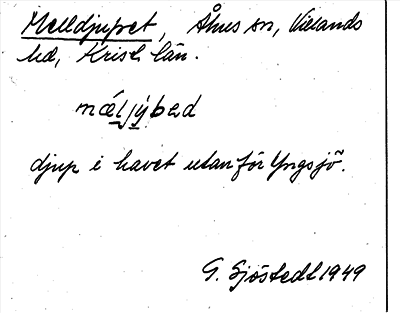 Melldjupet, Åhus sn, Villands
hd, Krist. län.
mæljýbəd
djup i havet utanför Yngsjö.
G. Sjöstedt 1949